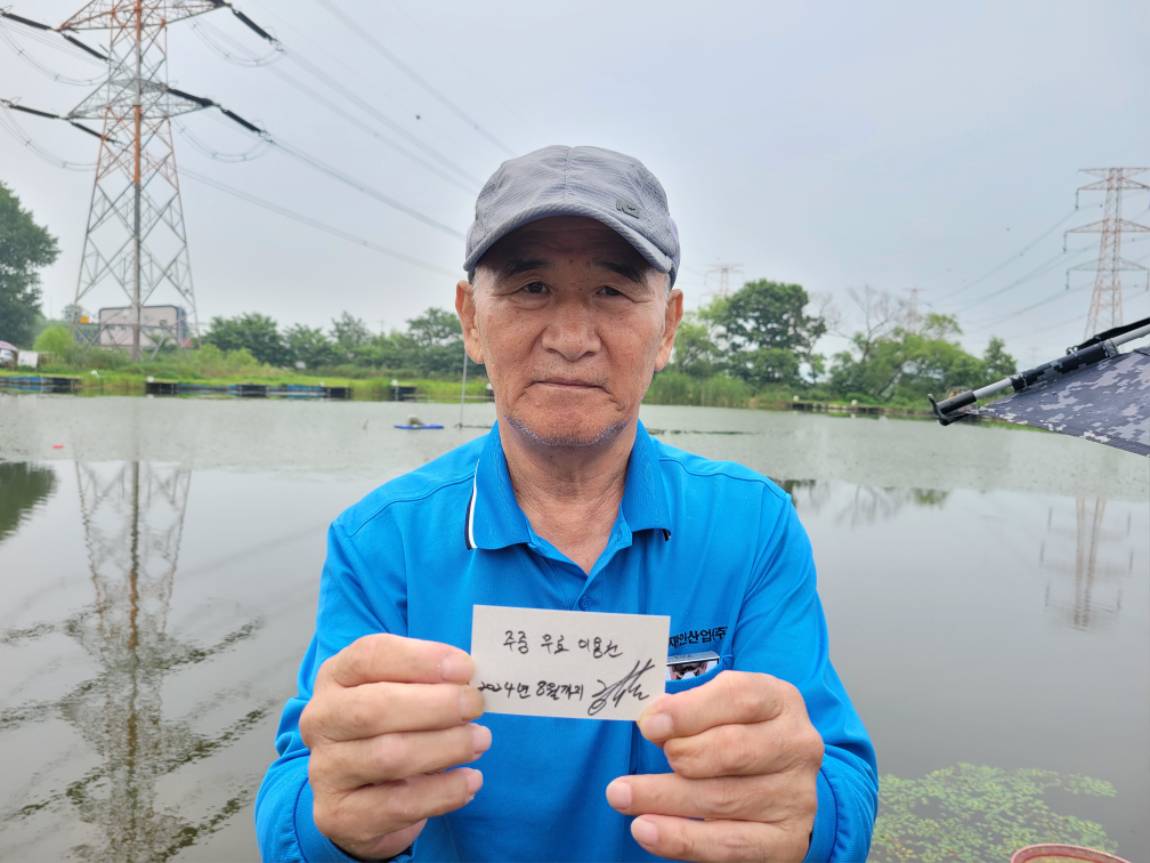 주중 무료 이용권
2024년 8월까지
재인산업(주)